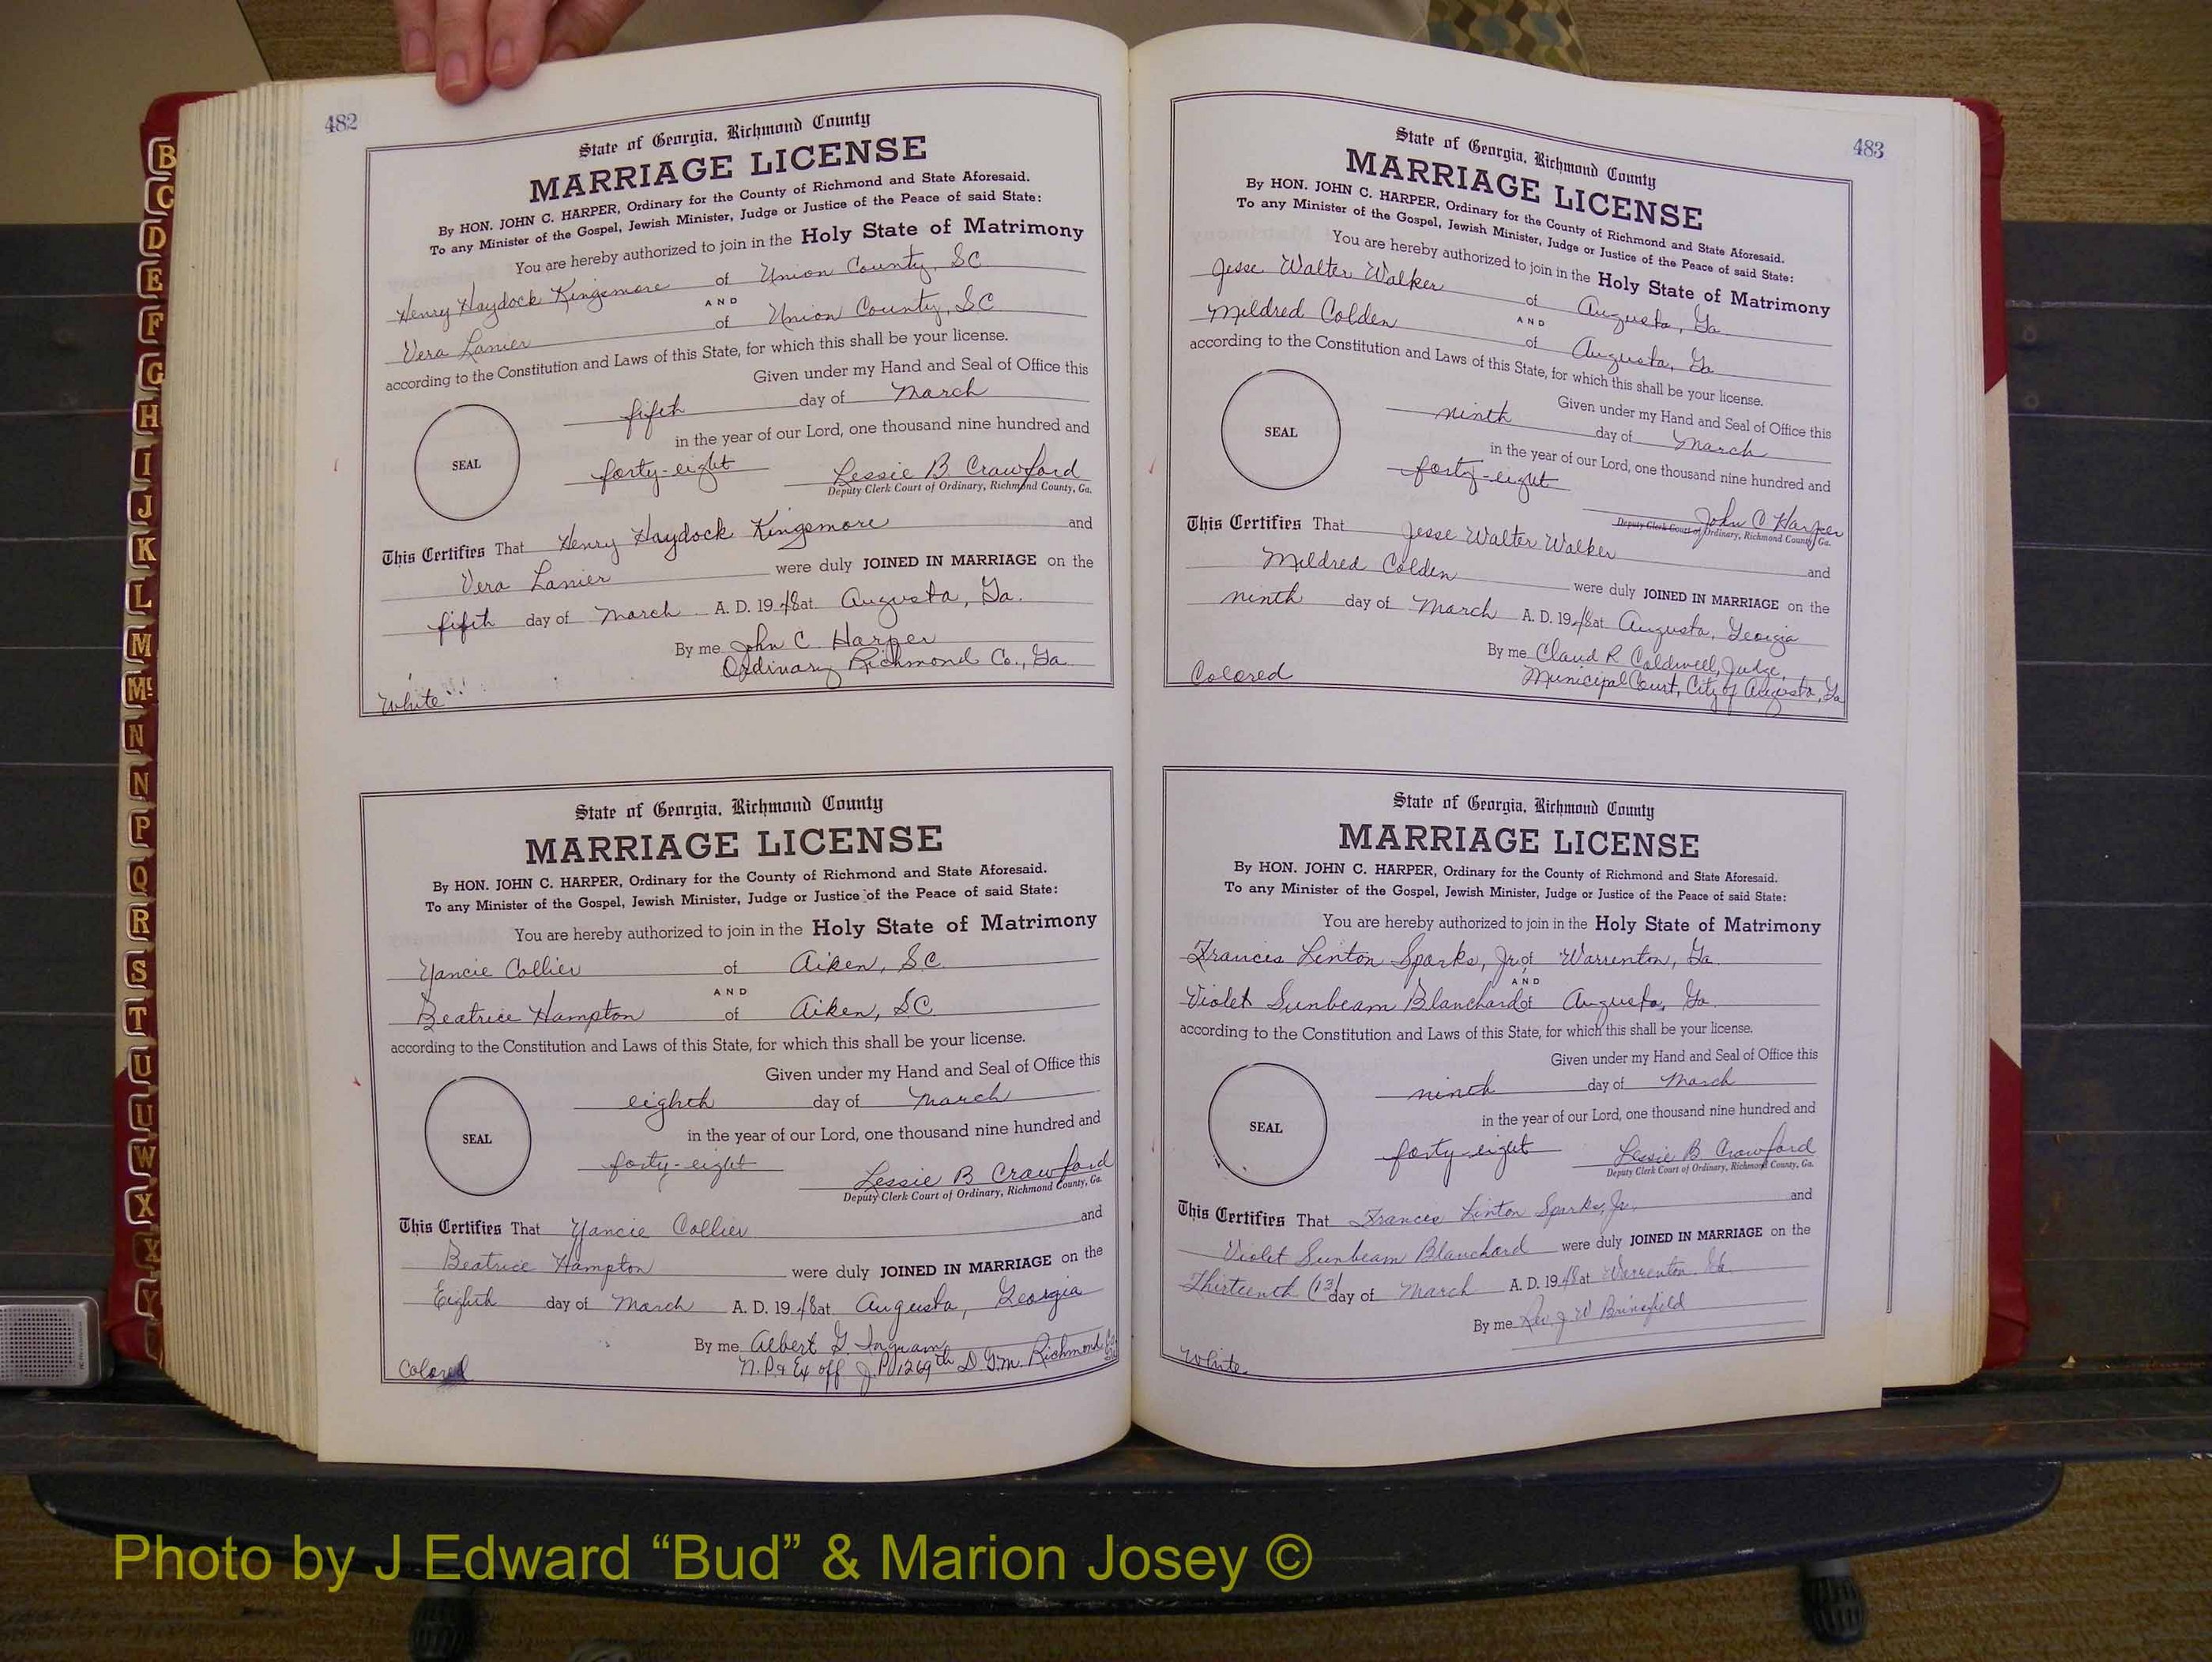 482
State of Georgia, Richmond County
MARRIAGE LICENSE
By HON. JOHN C. HARPER, Ordinary for the County of Richmond and State Aforesaid.
To any Minister of the Gospel, Jewish Minister, Judge or Justice of the Peace of said State:
You are hereby authorized to join in the Holy State of Matrimony
Henry Haydock Kingsmore of Union County, SC
AND
Vera Lanier of Union County, SC
according to the Constitution and Laws of this State, for which this shall be your license.
Given under my Hand and Seal of Office this
fifth day of March
in the year of our Lord, one thousand nine hundred and
SEAL
forty-eight Lessie B Crawford
Deputy Clerk Court of Ordinary, Richmond County, Ga.
This Certifies That Henry Haydock Kingsmore and
Vera Lanier were duly JOINED IN MARRIAGE on the
fifth day of March A. D. 1948 at Augusta, Ga.
By me John C. Harper
Ordinary Richmond Co., Ga
White
State of Georgia, Richmond County
MARRIAGE LICENSE
By HON. JOHN C. HARPER, Ordinary for the County of Richmond and State Aforesaid.
To any Minister of the Gospel, Jewish Minister, Judge or Justice of the Peace of said State:
You are hereby authorized to join in the Holy State of Matrimony
Yancie Collier of Aiken, SC
AND
Beatrice Hampton of Aiken, SC
according to the Constitution and Laws of this State, for which this shall be your license.
Given under my Hand and Seal of Office this
eighth day of March
in the year of our Lord, one thousand nine hundred and
SEAL
forty-eight Lessie B Crawford
Deputy Clerk Court of Ordinary, Richmond County, Ga.
This Certifies That Yancie Collier and
Beatrice Hampton were duly JOINED IN MARRIAGE on the
Eighth day of March A. D. 1948 at Augusta, Georgia
By me Albert G. Ingram
N.P. & Ex off J.P. 1269th D G.M. Richmond Co Ga
Colored
483
State of Georgia, Richmond County
MARRIAGE LICENSE
By HON. JOHN C. HARPER, Ordinary for the County of Richmond and State Aforesaid.
To any Minister of the Gospel, Jewish Minister, Judge or Justice of the Peace of said State:
You are hereby authorized to join in the Holy State of Matrimony
Jesse Walter Walker of Augusta, Ga
AND
Mildred Colden of Augusta, Ga
according to the Constitution and Laws of this State, for which this shall be your license.
Given under my Hand and Seal of Office this
ninth day of March
in the year of our Lord, one thousand nine hundred and
SEAL
forty-eight John C Harper
Deputy Clerk Court of Ordinary, Richmond County, Ga.
This Certifies That Jesse Walter Walker and
Mildred Colden were duly JOINED IN MARRIAGE on the
ninth day of March A. D. 1948 at Augusta, Georgia
By me Claud R. Caldwell, Judge,
Municipal Court, City of Augusta, Ga
Colored
State of Georgia, Richmond County
MARRIAGE LICENSE
By HON. JOHN C. HARPER, Ordinary for the County of Richmond and State Aforesaid.
To any Minister of the Gospel, Jewish Minister, Judge or Justice of the Peace of said State:
You are hereby authorized to join in the Holy State of Matrimony
Francis Linton Sparks, Jr. of Warrenton, Ga
AND
Violet Sunbeam Blanchard of Augusta, Ga
according to the Constitution and Laws of this State, for which this shall be your license.
Given under my Hand and Seal of Office this
ninth day of March
in the year of our Lord, one thousand nine hundred and
SEAL
forty-eight Lessie B Crawford
Deputy Clerk Court of Ordinary, Richmond County, Ga.
This Certifies That Frances Linton Sparks, Jr. and
Violet Sunbeam Blanchard were duly JOINED IN MARRIAGE on the
Thirteenth (13) day of March A. D. 1948 at Warrenton Ga
By me Rev. J. W Brinsfield
White
B
C
D
E
F
G
H
I
J
K
L
M
Mc
N
N
P
Q
R
S
T
U
U
W
X
X
Y
Photo by J Edward “Bud” & Marion Josey ©